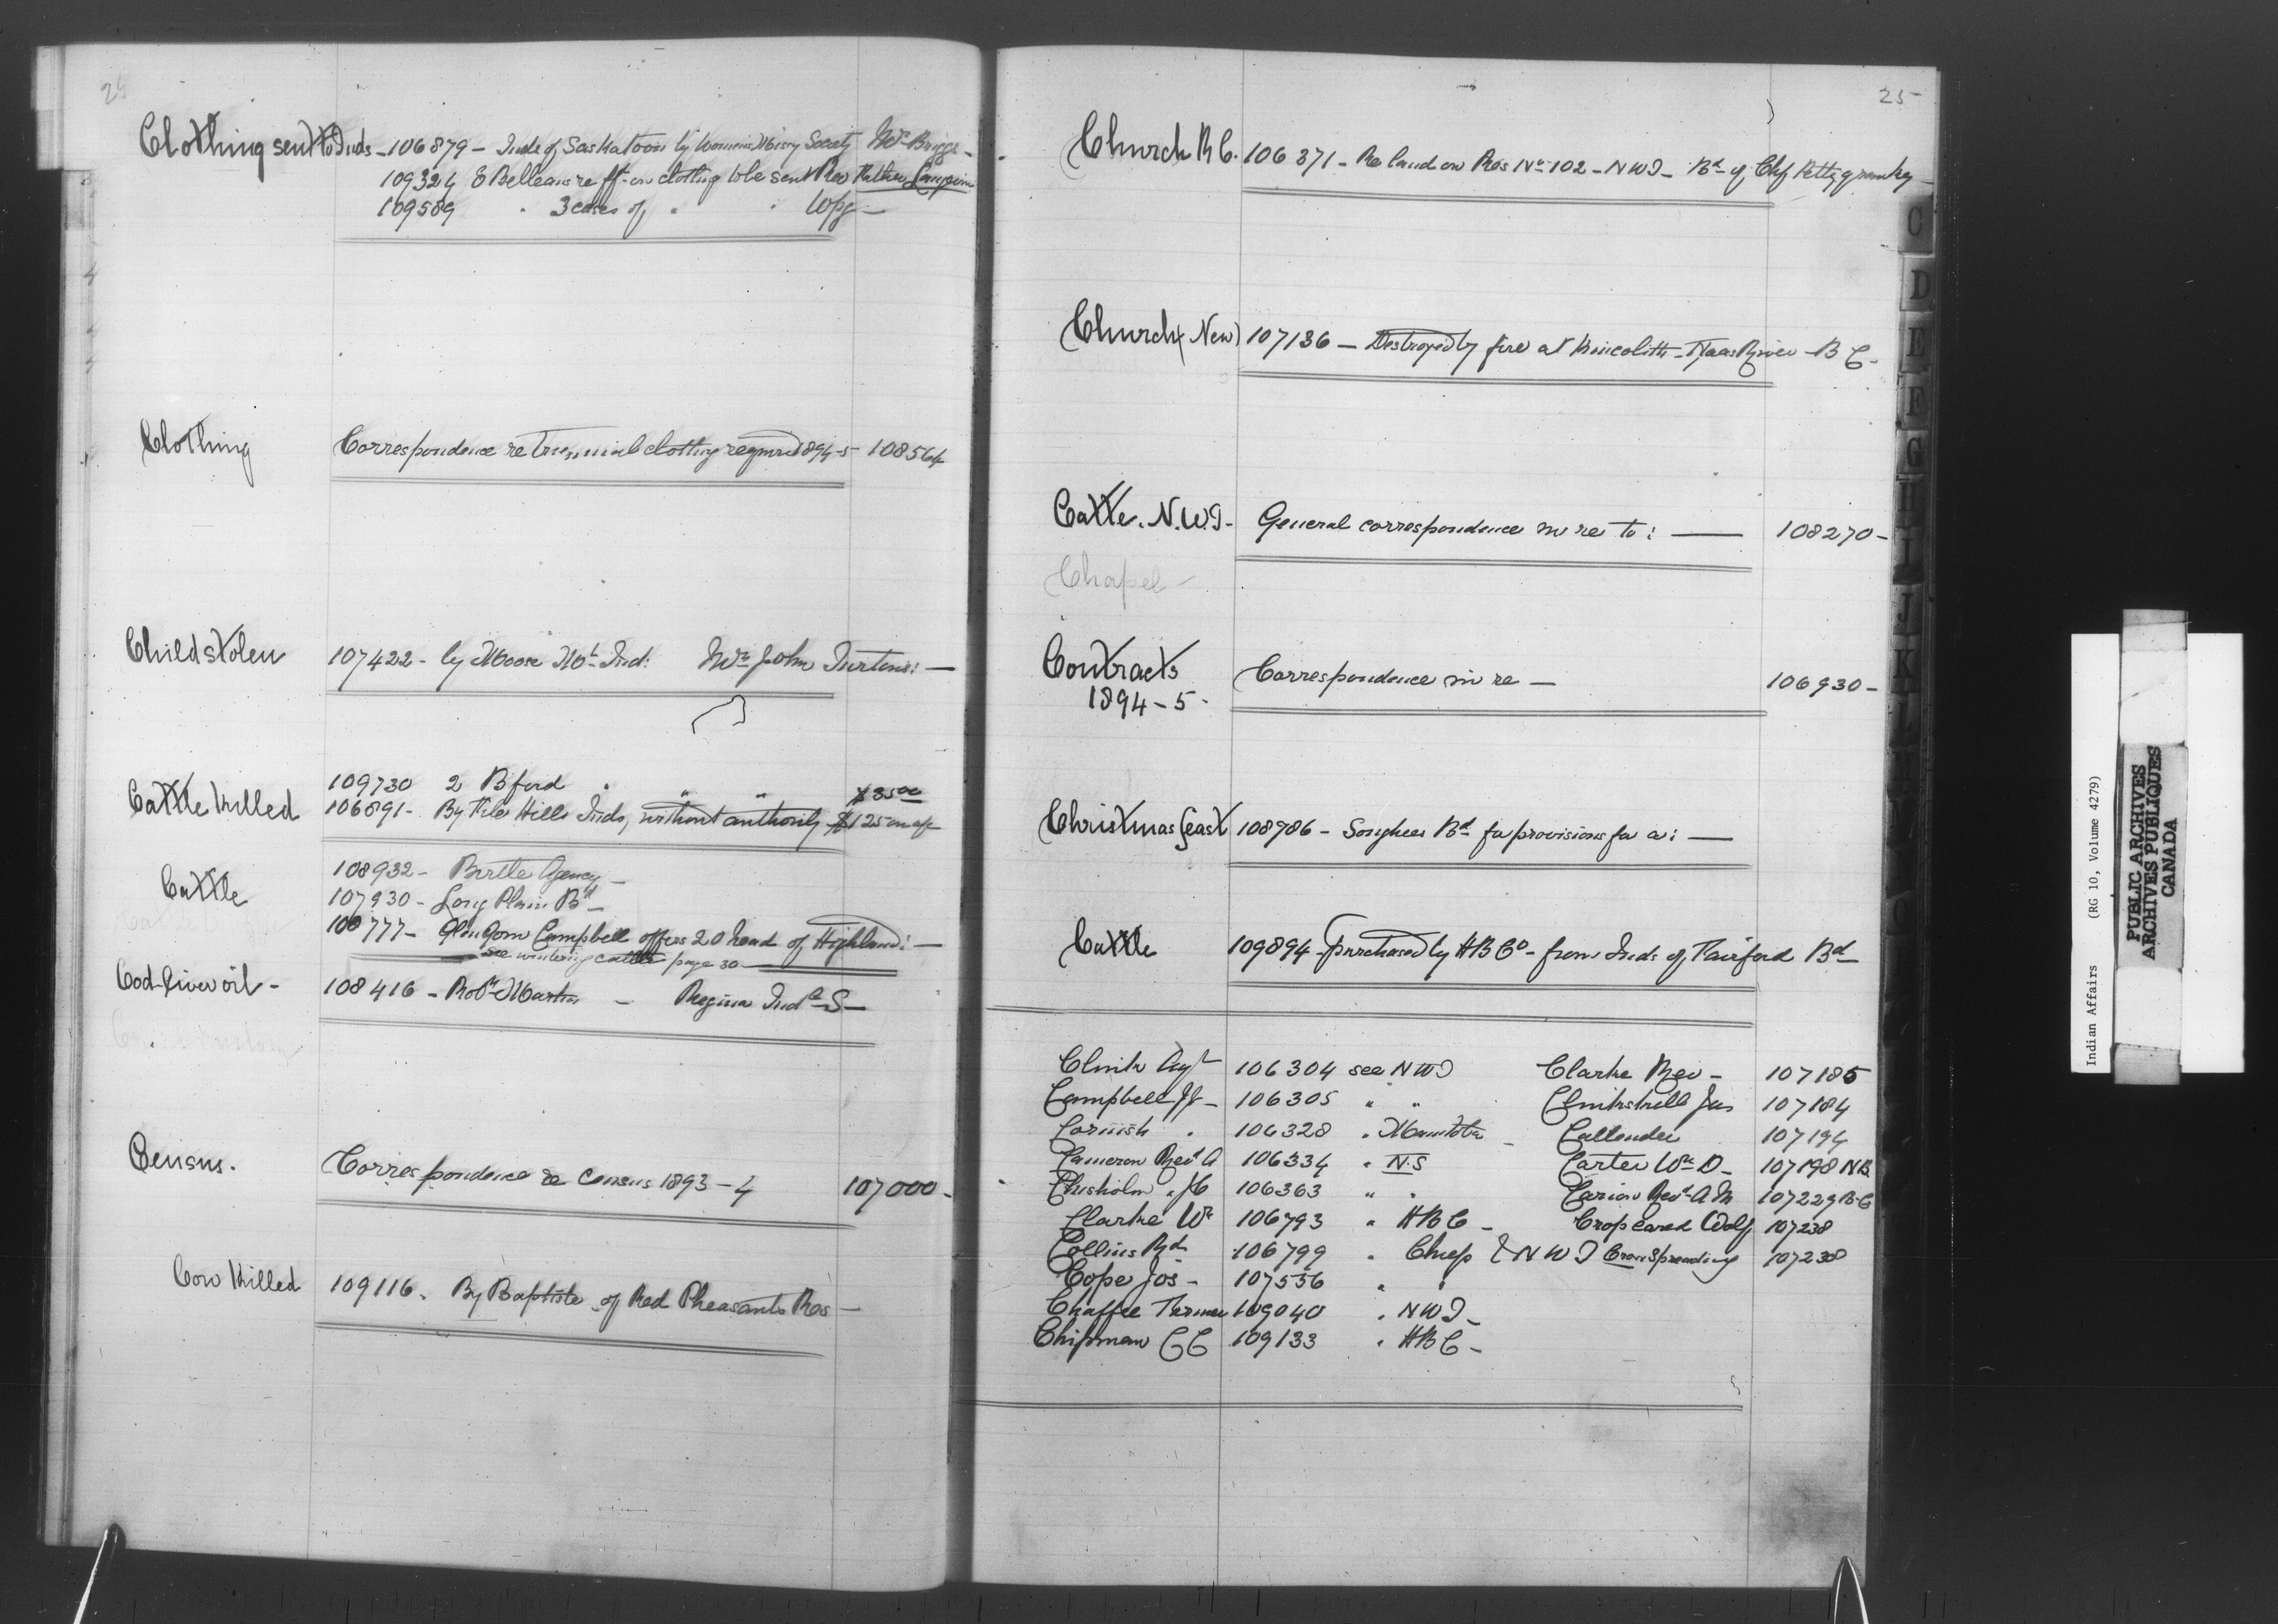 24
Clothing sent to Inds - 106879 - Inds of Saskatoon by Womens Missry Society Mrs Briggs -
109324 E Belleau re frt on clothing to be sent Rev Father
109589 " 3 cases of " " Wpg -
Clothing Correspondence re triennial clothing required 1894-5 - 108564
Child stolen 107422 - by Moose Mt Ind: Mrs John Turtons: -
109730 2 Bford " " " $35 00
Cattle killed 106891 - By File Hills Inds, without authority $125 on a/c
108932 - Birtle Agency -
Cattle 107930 - Long Plain Bd -
108777 - Glen Gorm Campbell offers 20 head of Highland: -
see wintering cattle page 30
Cod liver oil - 108416 - Robt Martin - Regina Indl S -
Census. Correspondence re Census 1893-4 107000 -
Cow killed 109116. By Baptiste of Red Pheasants Res -
25 -
Church R C. 106371 - Re land on Res No 102 - N W T - Bd of Chf
Church (New) 107136 - Destroyed by fire at Kincolith - Naas River - B C -
Cattle. N.W.T - General correspondence in re to: — 108270 -
Chapel -
Contracts Correspondence in re - 106930 -
1894 - 5 -
Christmas feast 108986 - Songhees Bd for provisions for a: -
Cattle 109894 - purchased by H B Co - from Inds of Fairford Bd -
106304 see N W T Clarke Rev - 107185
Campbell 106305 " " Jas 107184
Cornish " 106328 " Manitoba - Callender 107194
Cameron Revd A 106334 " N.S Carter Wm D - 107198 N B.
Chisholm " 106363 " " Carion Revd A M 107229 B.C
Clarke Wm 106793 " H B C - Crop eared Wolf 107238
Collins Rd 106799 " N W T Crow Spreading 107238
Cope Jos - 107556 " "
Chaffee 109040 " N W T -
Chipman C C 109133 " H B C -
C
D
E
F
G
I
J
K
L
Indian Affairs (RG 10, Volume 4279)
PUBLIC ARCHIVES
ARCHIVES PUBLIQUES
CANADA